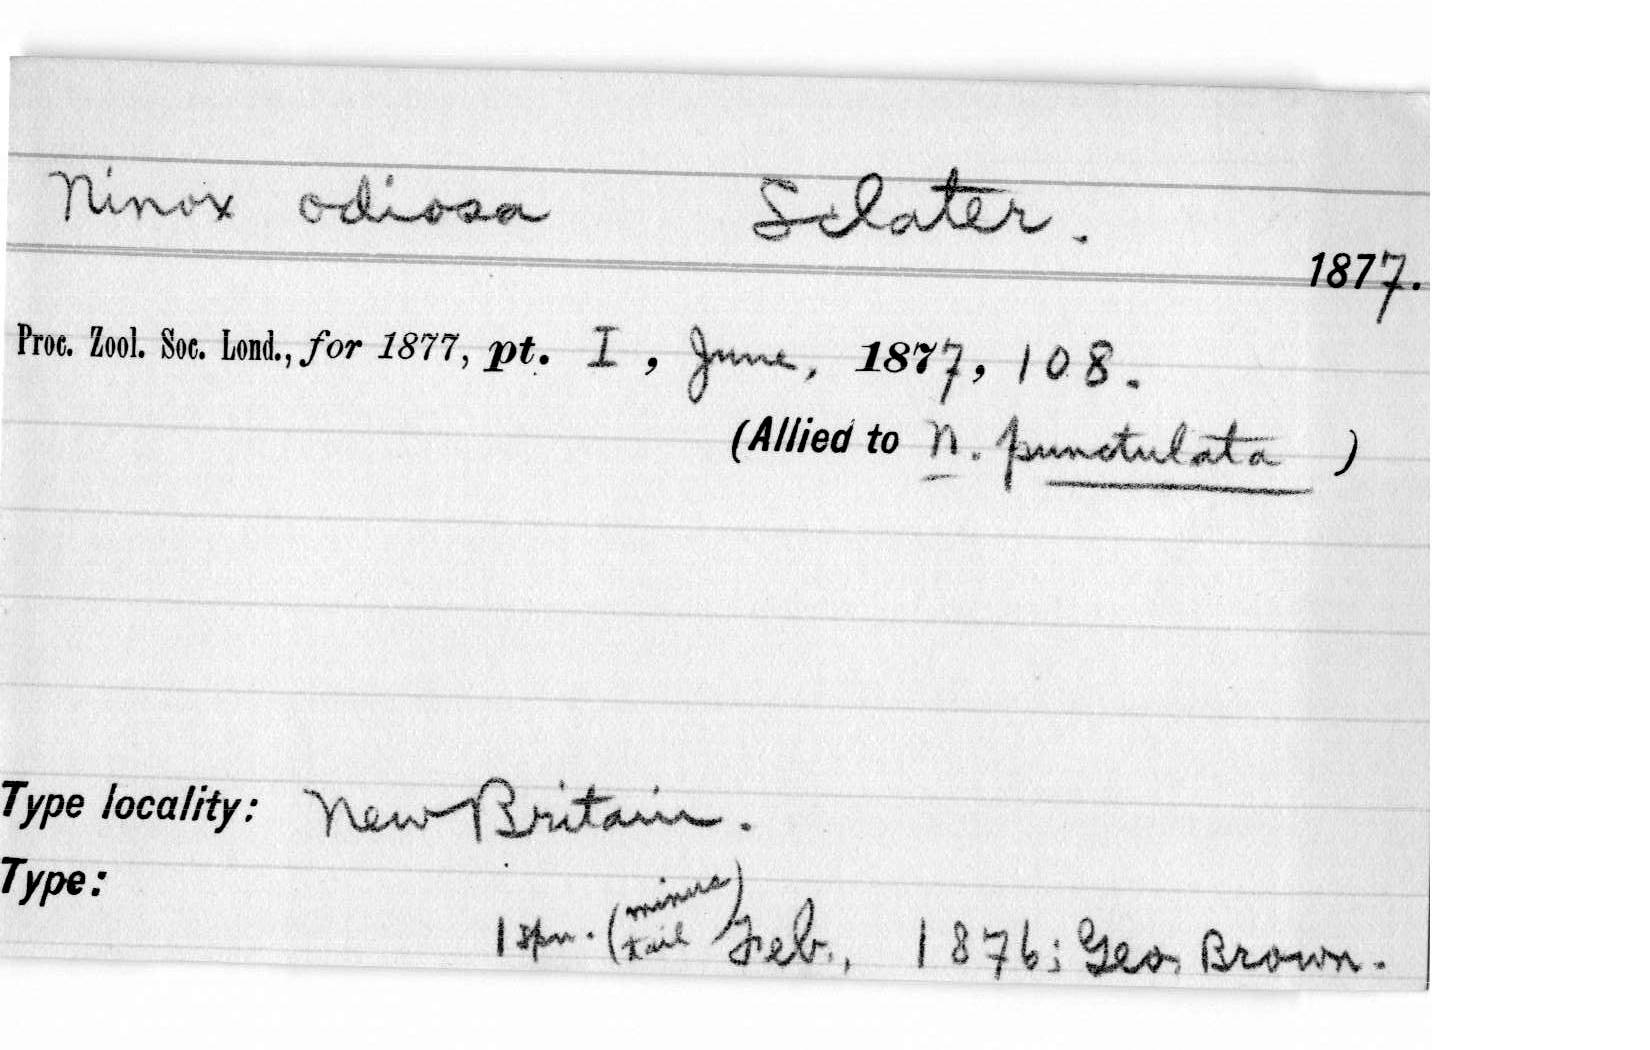 Ninox odiosa Sclater.
1877.
Proc. Zool. Soc. Lond., for 1877, pt. I, June, 1877, 108.
(Allied to N. punctulata )
Type locality: New Britain.
Type:
1 spn. (minus tail) Feb., 1876; Geo. Brown.